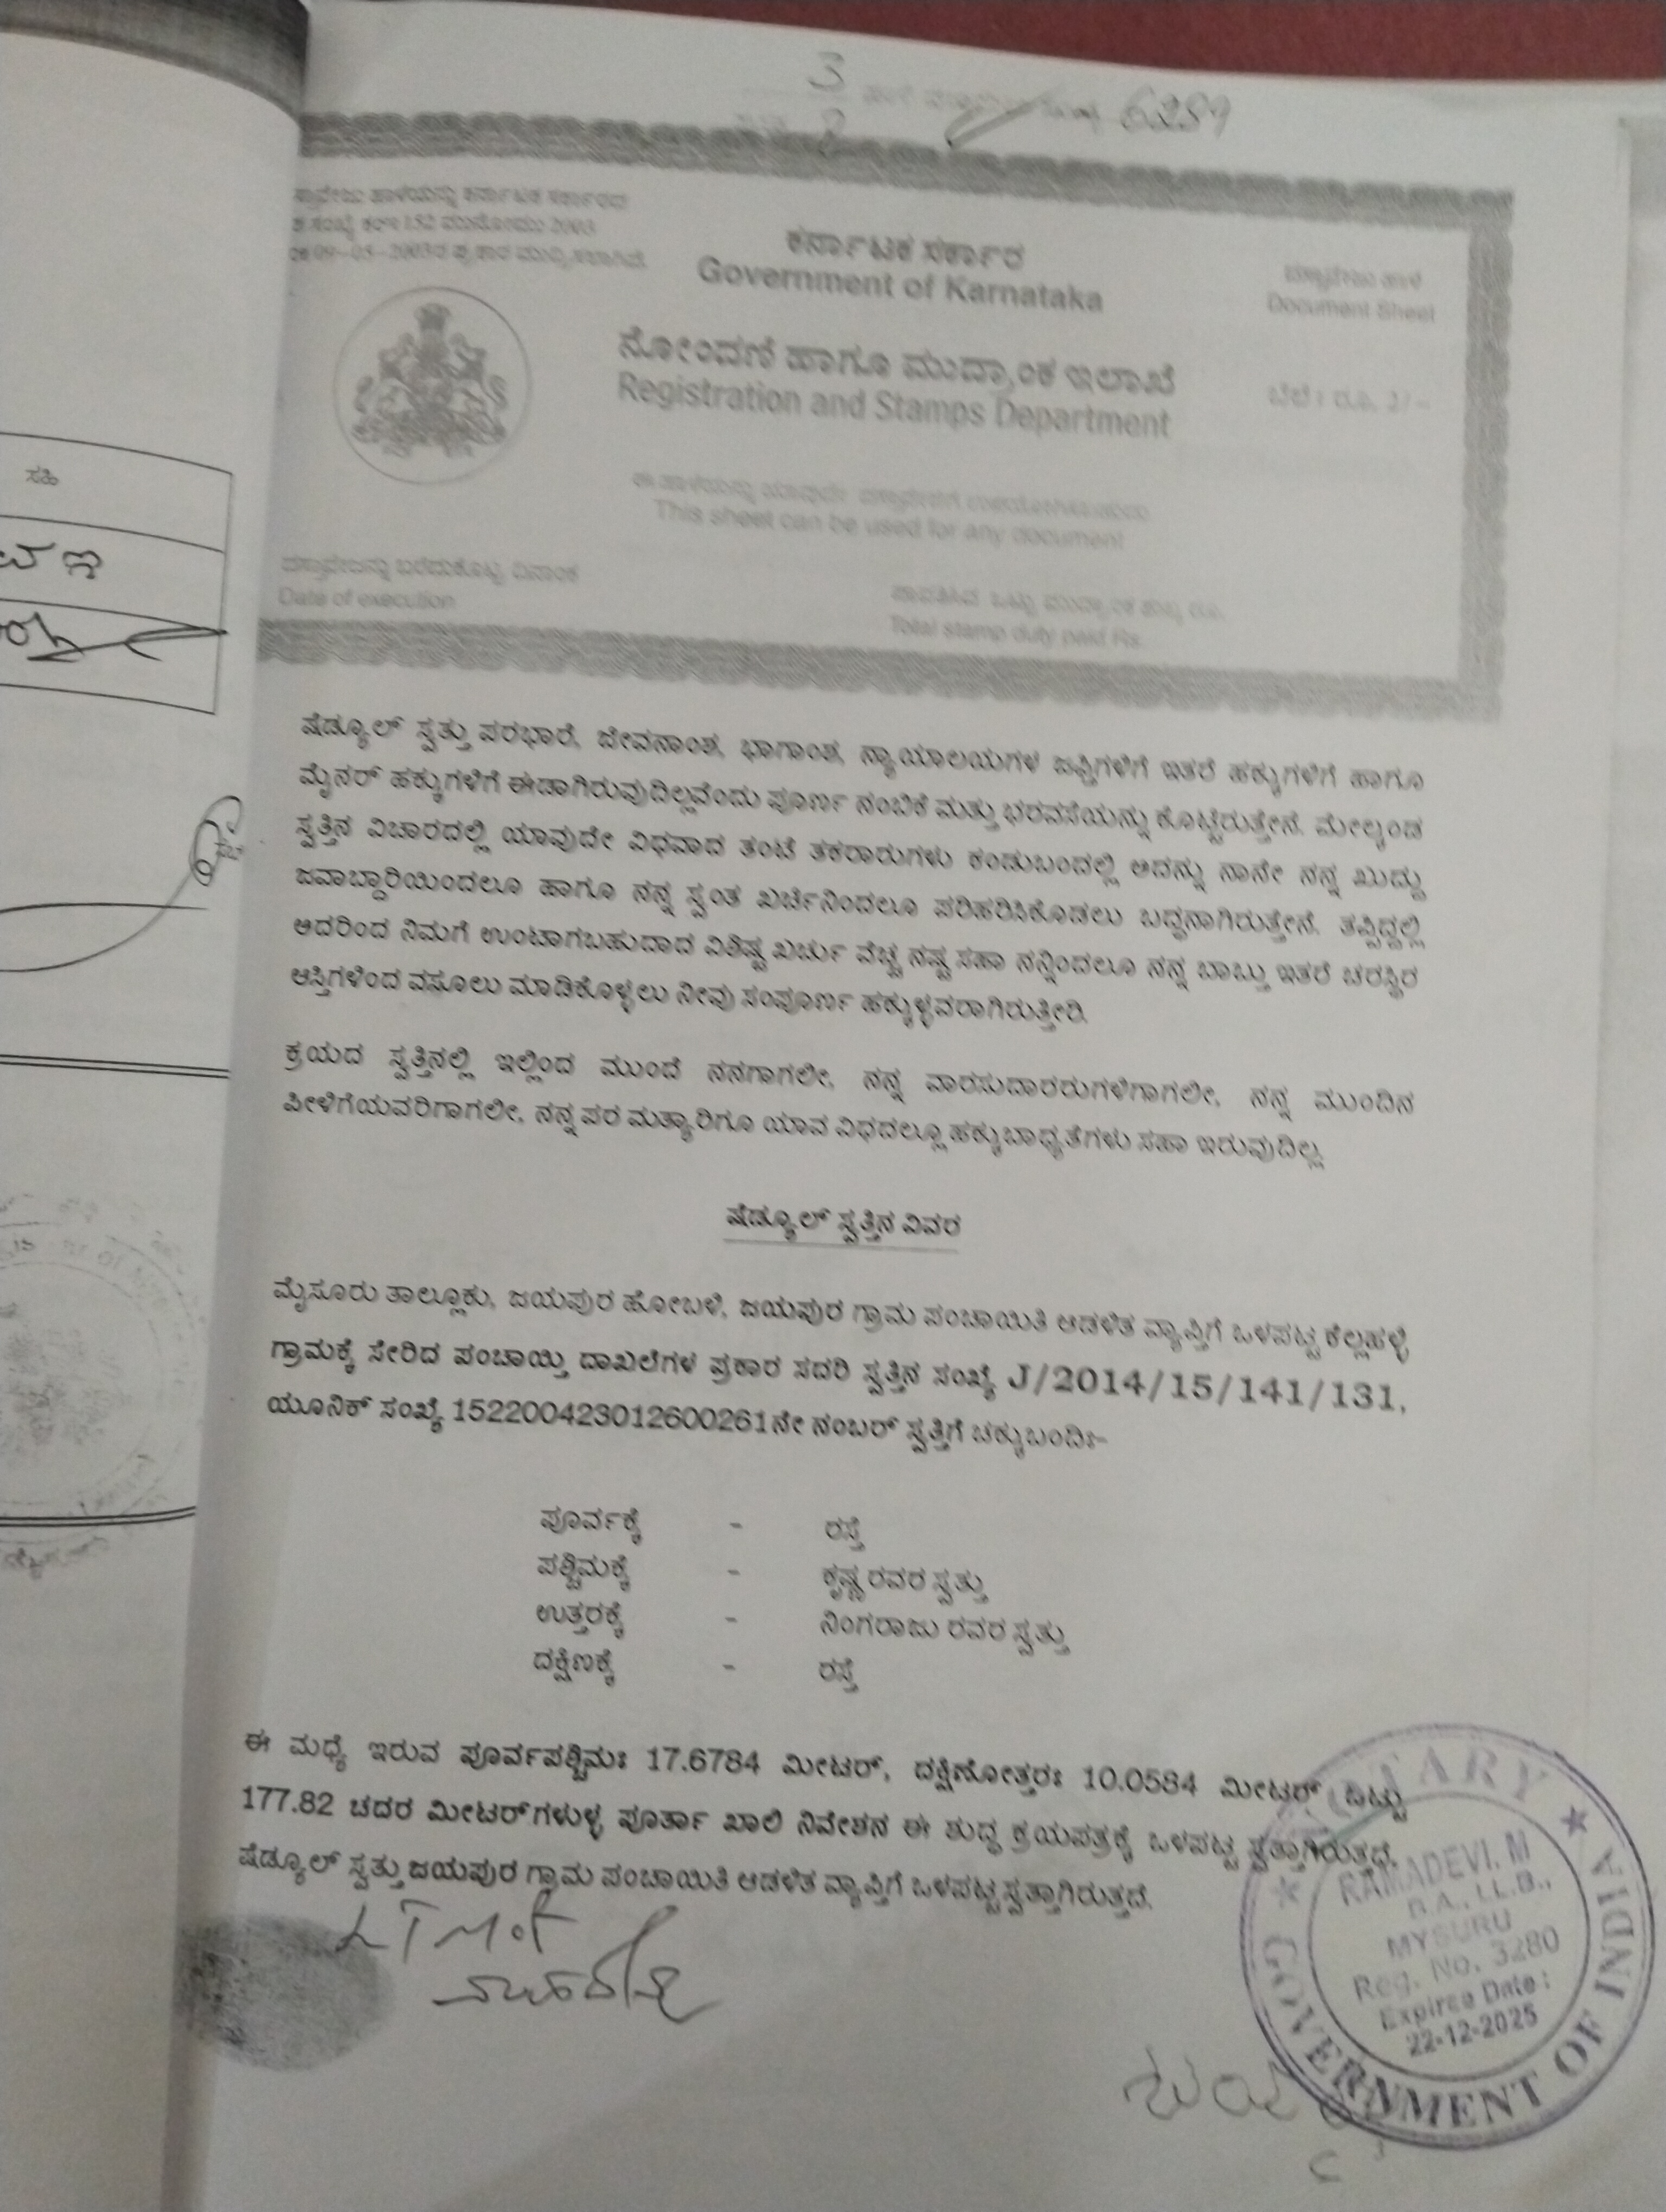 ಸಹಿ
3
6289
ಕರ್ನಾಟಕ ಸರ್ಕಾರ
Government of Karnataka
Document Sheet
ನೋಂದಣಿ ಹಾಗೂ ಮುದ್ರಾಂಕ ಇಲಾಖೆ
Registration and Stamps Department
This sheet can be used for any document
ದಸ್ತಾವೇಜನ್ನು ಬರೆದುಕೊಟ್ಟ ದಿನಾಂಕ
Date of execution
Total stamp duty paid Rs.
ಷೆಡ್ಯೂಲ್ ಸ್ವತ್ತು ಪರಭಾರೆ, ಜೀವನಾಂಶ, ಭಾಗಾಂಶ, ನ್ಯಾಯಾಲಯಗಳ ಜಪ್ತಿಗಳಿಗೆ ಇತರೆ ಹಕ್ಕುಗಳಿಗೆ ಹಾಗೂ
ಮೈನರ್ ಹಕ್ಕುಗಳಿಗೆ ಈಡಾಗಿರುವುದಿಲ್ಲವೆಂದು ಪೂರ್ಣ ನಂಬಿಕೆ ಮತ್ತು ಭರವಸೆಯನ್ನು ಕೊಟ್ಟಿರುತ್ತೇನೆ. ಮೇಲ್ಕಂಡ
ಸ್ವತ್ತಿನ ವಿಚಾರದಲ್ಲಿ ಯಾವುದೇ ವಿಧವಾದ ತಂಟೆ ತಕರಾರುಗಳು ಕಂಡುಬಂದಲ್ಲಿ ಅದನ್ನು ನಾನೇ ನನ್ನ ಖುದ್ದು
ಜವಾಬ್ದಾರಿಯಿಂದಲೂ ಹಾಗೂ ನನ್ನ ಸ್ವಂತ ಖರ್ಚಿನಿಂದಲೂ ಪರಿಹರಿಸಿಕೊಡಲು ಬದ್ಧನಾಗಿರುತ್ತೇನೆ. ತಪ್ಪಿದ್ದಲ್ಲಿ
ಆದರಿಂದ ನಿಮಗೆ ಉಂಟಾಗಬಹುದಾದ ವಿಶಿಷ್ಟ ಖರ್ಚು ವೆಚ್ಚ ನಷ್ಟ ಸಹಾ ನನ್ನಿಂದಲೂ ನನ್ನ ಬಾಬ್ತು ಇತರೆ ಚರಸ್ಥಿರ
ಆಸ್ತಿಗಳಿಂದ ವಸೂಲು ಮಾಡಿಕೊಳ್ಳಲು ನೀವು ಸಂಪೂರ್ಣ ಹಕ್ಕುಳ್ಳವರಾಗಿರುತ್ತೀರಿ.
ಕ್ರಯದ ಸ್ವತ್ತಿನಲ್ಲಿ ಇಲ್ಲಿಂದ ಮುಂದೆ ನನಗಾಗಲೀ, ನನ್ನ ವಾರಸುದಾರರುಗಳಿಗಾಗಲೀ, ನನ್ನ ಮುಂದಿನ
ಪೀಳಿಗೆಯವರಿಗಾಗಲೀ, ನನ್ನ ಪರ ಮತ್ಯಾರಿಗೂ ಯಾವ ವಿಧದಲ್ಲೂ ಹಕ್ಕುಬಾಧ್ಯತೆಗಳು ಸಹಾ ಇರುವುದಿಲ್ಲ.
ಷೆಡ್ಯೂಲ್ ಸ್ವತ್ತಿನ ವಿವರ
ಮೈಸೂರು ತಾಲ್ಲೂಕು, ಜಯಪುರ ಹೋಬಳಿ, ಜಯಪುರ ಗ್ರಾಮ ಪಂಚಾಯಿತಿ ಆಡಳಿತ ವ್ಯಾಪ್ತಿಗೆ ಒಳಪಟ್ಟ ಕೆಲ್ಲಹಳ್ಳಿ
ಗ್ರಾಮಕ್ಕೆ ಸೇರಿದ ಪಂಚಾಯ್ತಿ ದಾಖಲೆಗಳ ಪ್ರಕಾರ ಸದರಿ ಸ್ವತ್ತಿನ ಸಂಖ್ಯೆ J/2014/15/141/131,
ಯೂನಿಕ್ ಸಂಖ್ಯೆ 152200423012600261ನೇ ನಂಬರ್ ಸ್ವತ್ತಿಗೆ ಚಕ್ಕುಬಂದಿಃ-
ಪೂರ್ವಕ್ಕೆ - ರಸ್ತೆ
ಪಶ್ಚಿಮಕ್ಕೆ - ಕೃಷ್ಣ ರವರ ಸ್ವತ್ತು
ಉತ್ತರಕ್ಕೆ - ನಿಂಗರಾಜು ರವರ ಸ್ವತ್ತು
ದಕ್ಷಿಣಕ್ಕೆ - ರಸ್ತೆ
ಈ ಮಧ್ಯೆ ಇರುವ ಪೂರ್ವಪಶ್ಚಿಮಃ 17.6784 ಮೀಟರ್, ದಕ್ಷಿಣೋತ್ತರಃ 10.0584 ಮೀಟರ್ ಒಟ್ಟು
177.82 ಚದರ ಮೀಟರ್‌ಗಳುಳ್ಳ ಪೂರ್ತಾ ಖಾಲಿ ನಿವೇಶನ ಈ ಶುದ್ಧ ಕ್ರಯಪತ್ರಕ್ಕೆ ಒಳಪಟ್ಟ ಸ್ವತ್ತಾಗಿರುತ್ತದೆ.
ಷೆಡ್ಯೂಲ್ ಸ್ವತ್ತು ಜಯಪುರ ಗ್ರಾಮ ಪಂಚಾಯಿತಿ ಆಡಳಿತ ವ್ಯಾಪ್ತಿಗೆ ಒಳಪಟ್ಟ ಸ್ವತ್ತಾಗಿರುತ್ತದೆ.
LTM of
NOTARY
RAMADEVI. M
B.A., LL.B.,
MYSURU
Reg. No. 3280
Expires Date :
22-12-2025
GOVERNMENT OF INDIA